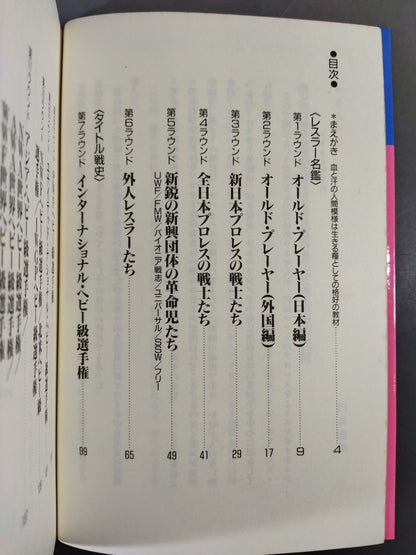 ●目次●
＊まえがき　血と汗の人間模様は生きる糧としての格好の教材 4
〈レスラー名鑑〉
第1ラウンド　オールド・プレーヤー(日本編) 9
第2ラウンド　オールド・プレーヤー(外国編) 17
第3ラウンド　新日本プロレスの戦士たち 29
第4ラウンド　全日本プロレスの戦士たち 41
第5ラウンド　新鋭の新興団体の革命児たち 49
UWF／FMW／パイオニア戦志／ユニバーサル／SSW／フリー
第6ラウンド　外人レスラーたち 65
〈タイトル戦史〉
第7ラウンド　インターナショナル・ヘビー級選手権 99